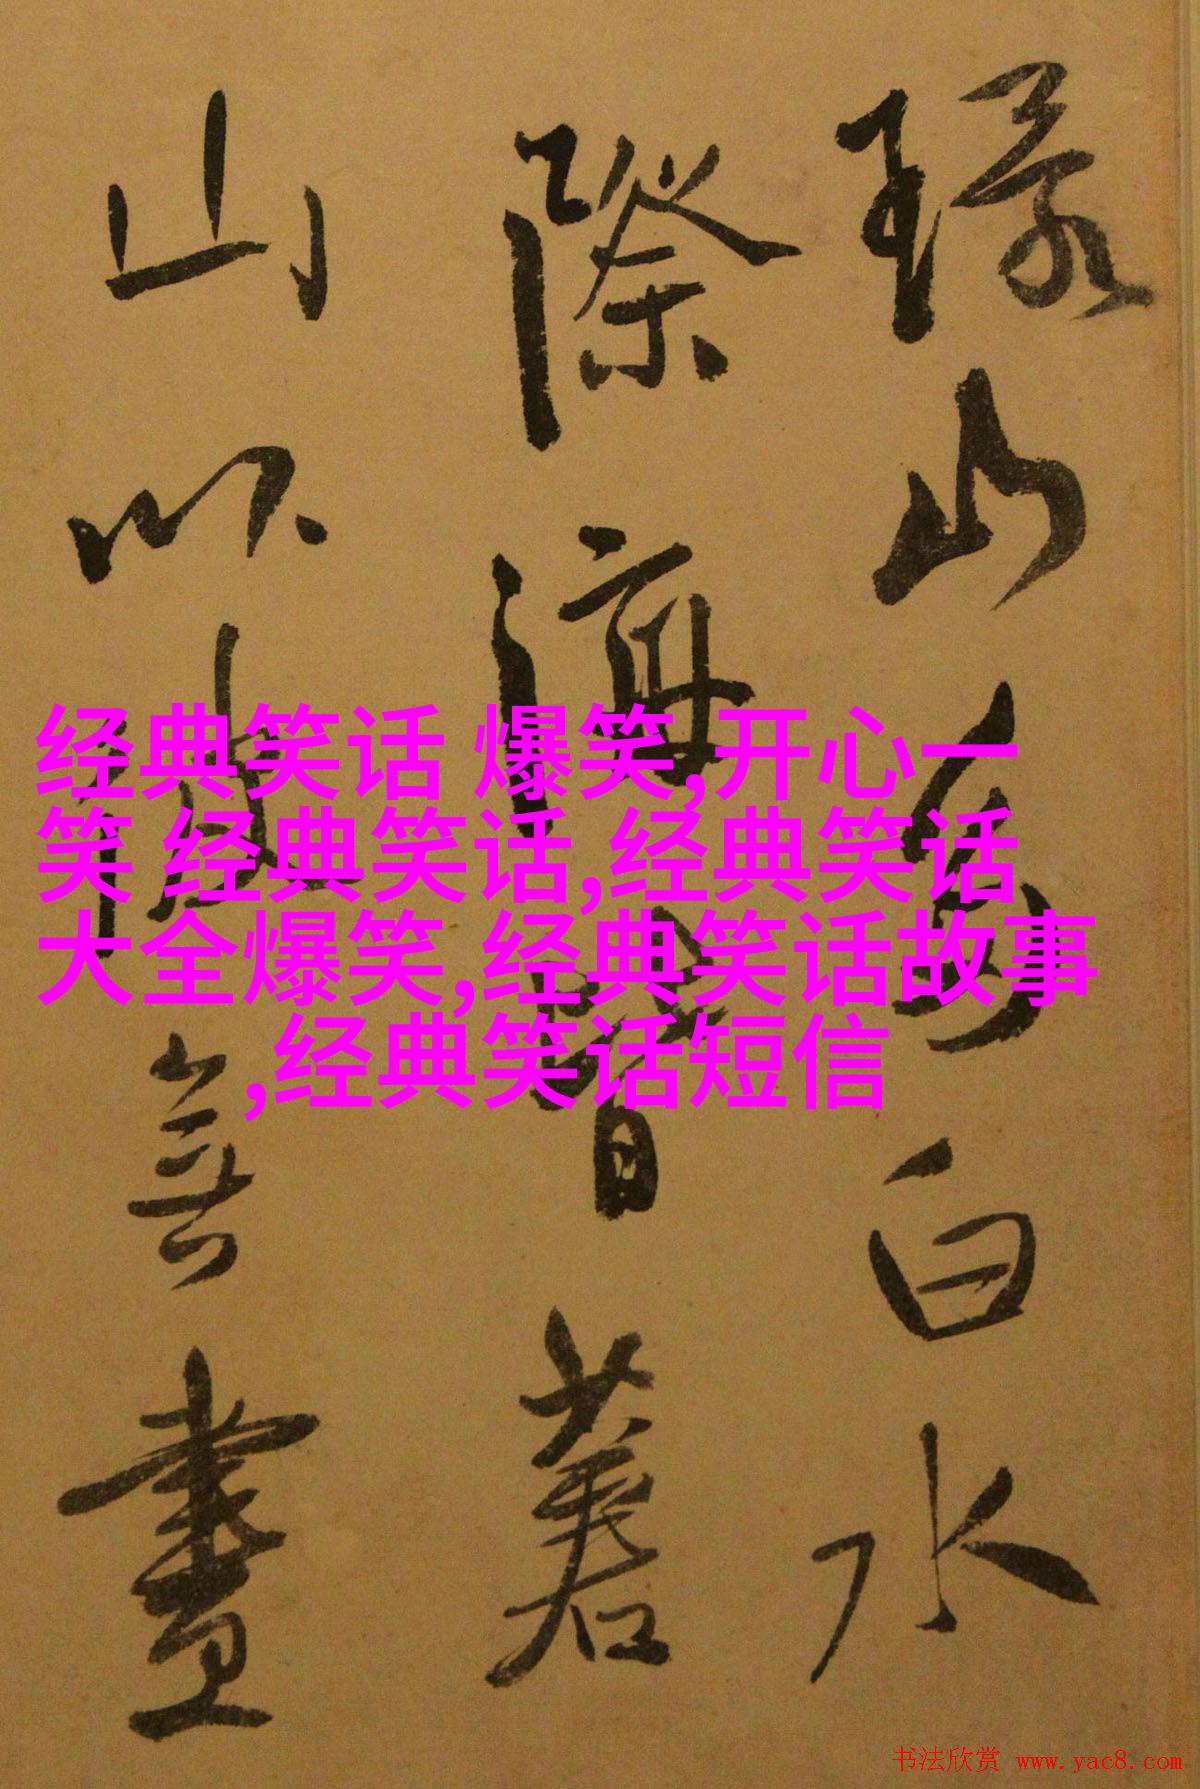 山 白水
際海 著
山以 無
经典笑话 爆笑,开心一
笑 经典笑话,经典笑话
大全爆笑,经典笑话故事
,经典笑话短信
书法欣赏 www.yac8.com